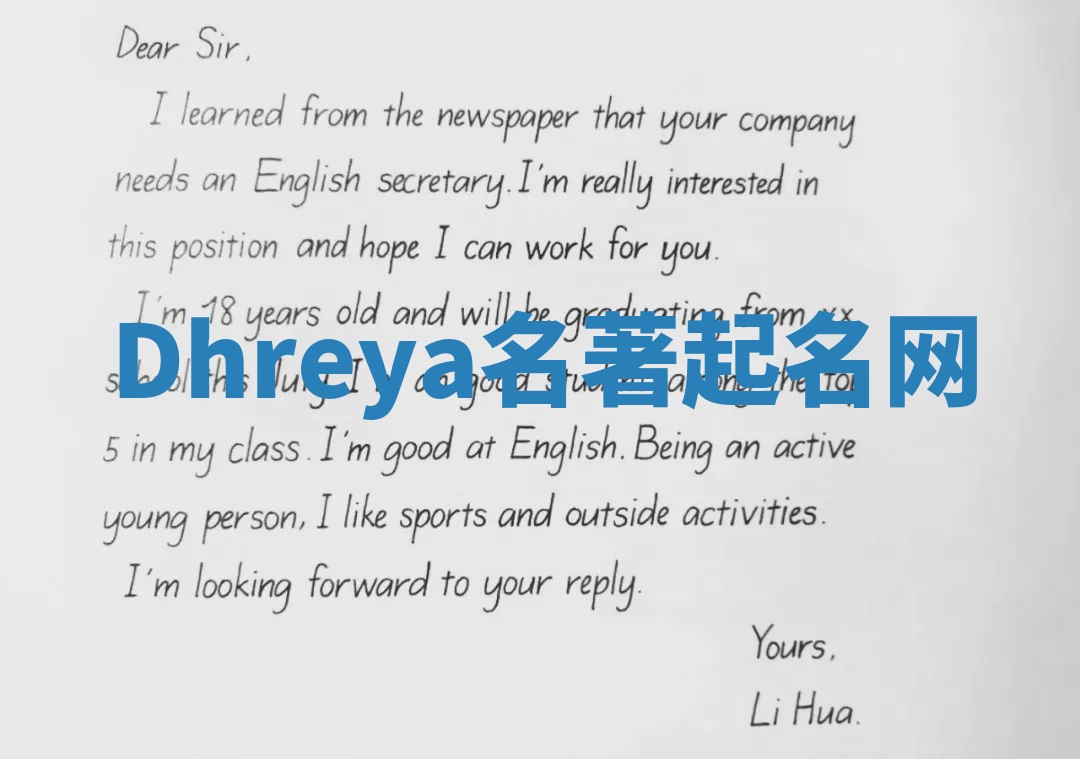 Dear Sir,
I learned from the newspaper that your company
needs an English secretary. I'm really interested in
this position and hope I can work for you.
I'm 18 years old and will be graduating from xx
Dhreya名著起名网
school this July. I'm good student among the top
5 in my class. I'm good at English. Being an active
young person, I like sports and outside activities.
I'm looking forward to your reply.
Yours,
Li Hua.